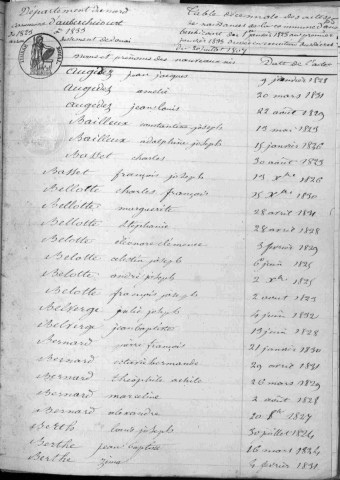 Département du nord
Commune d'auberchicourt
de 1823 à 1833
arrondissement de douai
Table décennale des
naissances de la commune d'auberchicourt du 1er janvier 1823 au premier
janvier 1833
du 20 juillet 1807
noms et prénoms des nouveaux nés Date de l'acte
Augedez jean jacques 9 janvier 1828
Augedez amélie 20 mars 1831
Augedez jean louis 22 août 1829
Bailleux constantin joseph 13 mai 1823
Bailleux adolphine joseph 15 janvier 1826
Basset charles 30 août 1823
Basset françois joseph 13 Xbre 1826
Bellotte charles françois 15 Xbre 1830
Bellotte marguerite 28 avril 1831
Bellotte stéphanie 28 avril 1828
Belotte éléonore clémence 3 février 1829
Belotte célestin joseph 6 juin 1825
Belotte andré joseph 2 Xbre 1825
Belotte françois joseph 2 avril 1823
Belverge julie joseph 4 juin 1832
Belverge jean baptiste 13 juin 1828
Bernard pierre françois 21 janvier 1830
Bernard hermande 29 avril 1831
Bernard théophile achile 20 mars 1829
Bernard marceline 2 août 1828
Bernard alexandre 20 8bre 1827
Berth louis joseph 30 juillet 1824
Berthe jean baptiste 16 mars 1824
Berthe zima 4 février 1831